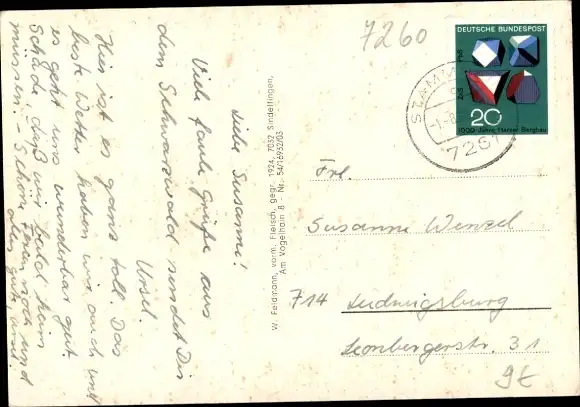 7260
DEUTSCHE BUNDESPOST
20
1000 Jahre Harzer Bergbau
STAMM
7261
Liebe Susanne!
Viele faule Grüße aus
dem Schwarzwald sendet Dir
Ursel.
Hier ist es ganz toll. Das
beste Wetter haben wir auch und
es geht uns wunderbar gut.
Schade, daß wir bald heim
müssen. - Schöne Ferien noch und
W. Feldmann, vorm. Fleisch, gegr. 1924, 7032 Sindelfingen,
Am Vogelhain 8 - Nr. 54/16952/03
Frl.
Susanne Wenzel
714 Ludwigsburg
Leonbergerstr. 31
9E